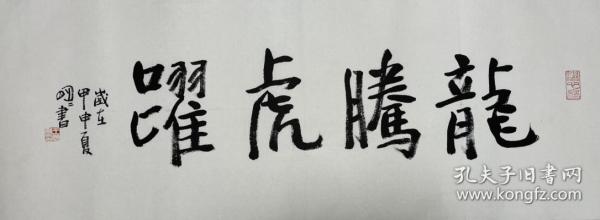 龍騰虎躍
歲在
甲申夏
明書
孔夫子旧书网
www.kongfz.com